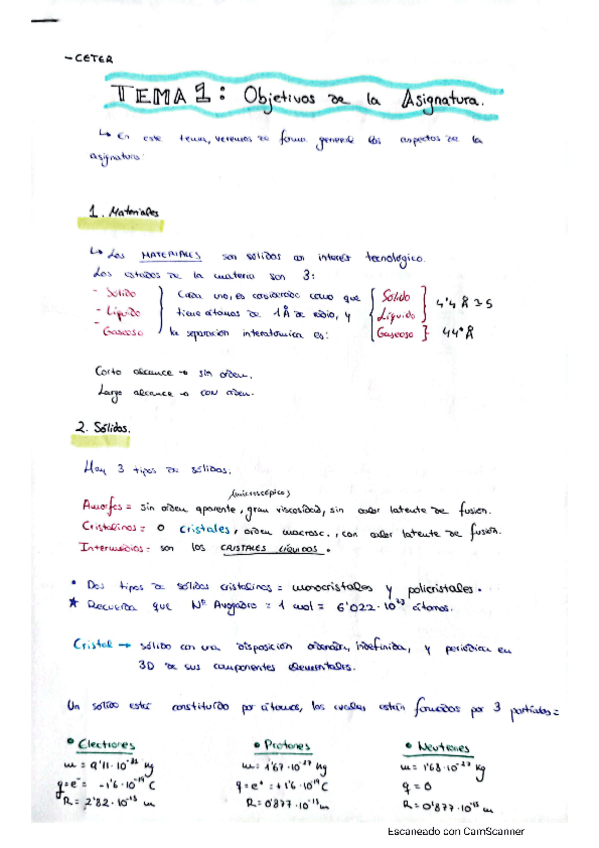 - CETER
TEMA 1: Objetivos de la Asignatura.
↳ En este tema, veremos de forma general los aspectos de la
asignatura:
1. Materiales
↳ Los MATERIALES son sólidos con interés tecnológico.
Los estados de la materia son 3:
- Sólido
- Líquido
- Gaseoso
Cada uno, es considerado como que
tiene átomos de 1 Å de radio, y
la separación interatómica es:
Sólido
Líquido
Gaseoso
4'4 Å
44 Å
Corto alcance → sin orden.
Largo alcance → con orden.
2. Sólidos.
Hay 3 tipos de sólidos.
(microscópico)
Amorfos = sin orden aparente, gran viscosidad, sin calor latente de fusión.
Cristalinos = o cristales, orden macrosc., con calor latente de fusión.
Intermedios = son los CRISTALES LÍQUIDOS.
• Dos tipos de sólidos cristalinos = monocristales y policristales.
★ Recuerda que Nº Avogadro = 1 mol = 6'022·10²³ átomos.
Cristal → sólido con una disposición ordenada, indefinida, y periódica en
3D de sus componentes elementales.
Un sólido está constituido por átomos, los cuales están formados por 3 partículas =
• Electrones
m = 9'11·10⁻³¹ kg
q = e⁻ = -1'6·10⁻¹⁹ C
R = 2'82·10⁻¹⁵ m
• Protones
m = 1'67·10⁻²⁷ kg
q = e⁺ = +1'6·10⁻¹⁹ C
R = 0'877·10⁻¹⁵ m
• Neutrones
m = 1'68·10⁻²⁷ kg
q = 0
R = 0'877·10⁻¹⁵ m
Escaneado con CamScanner